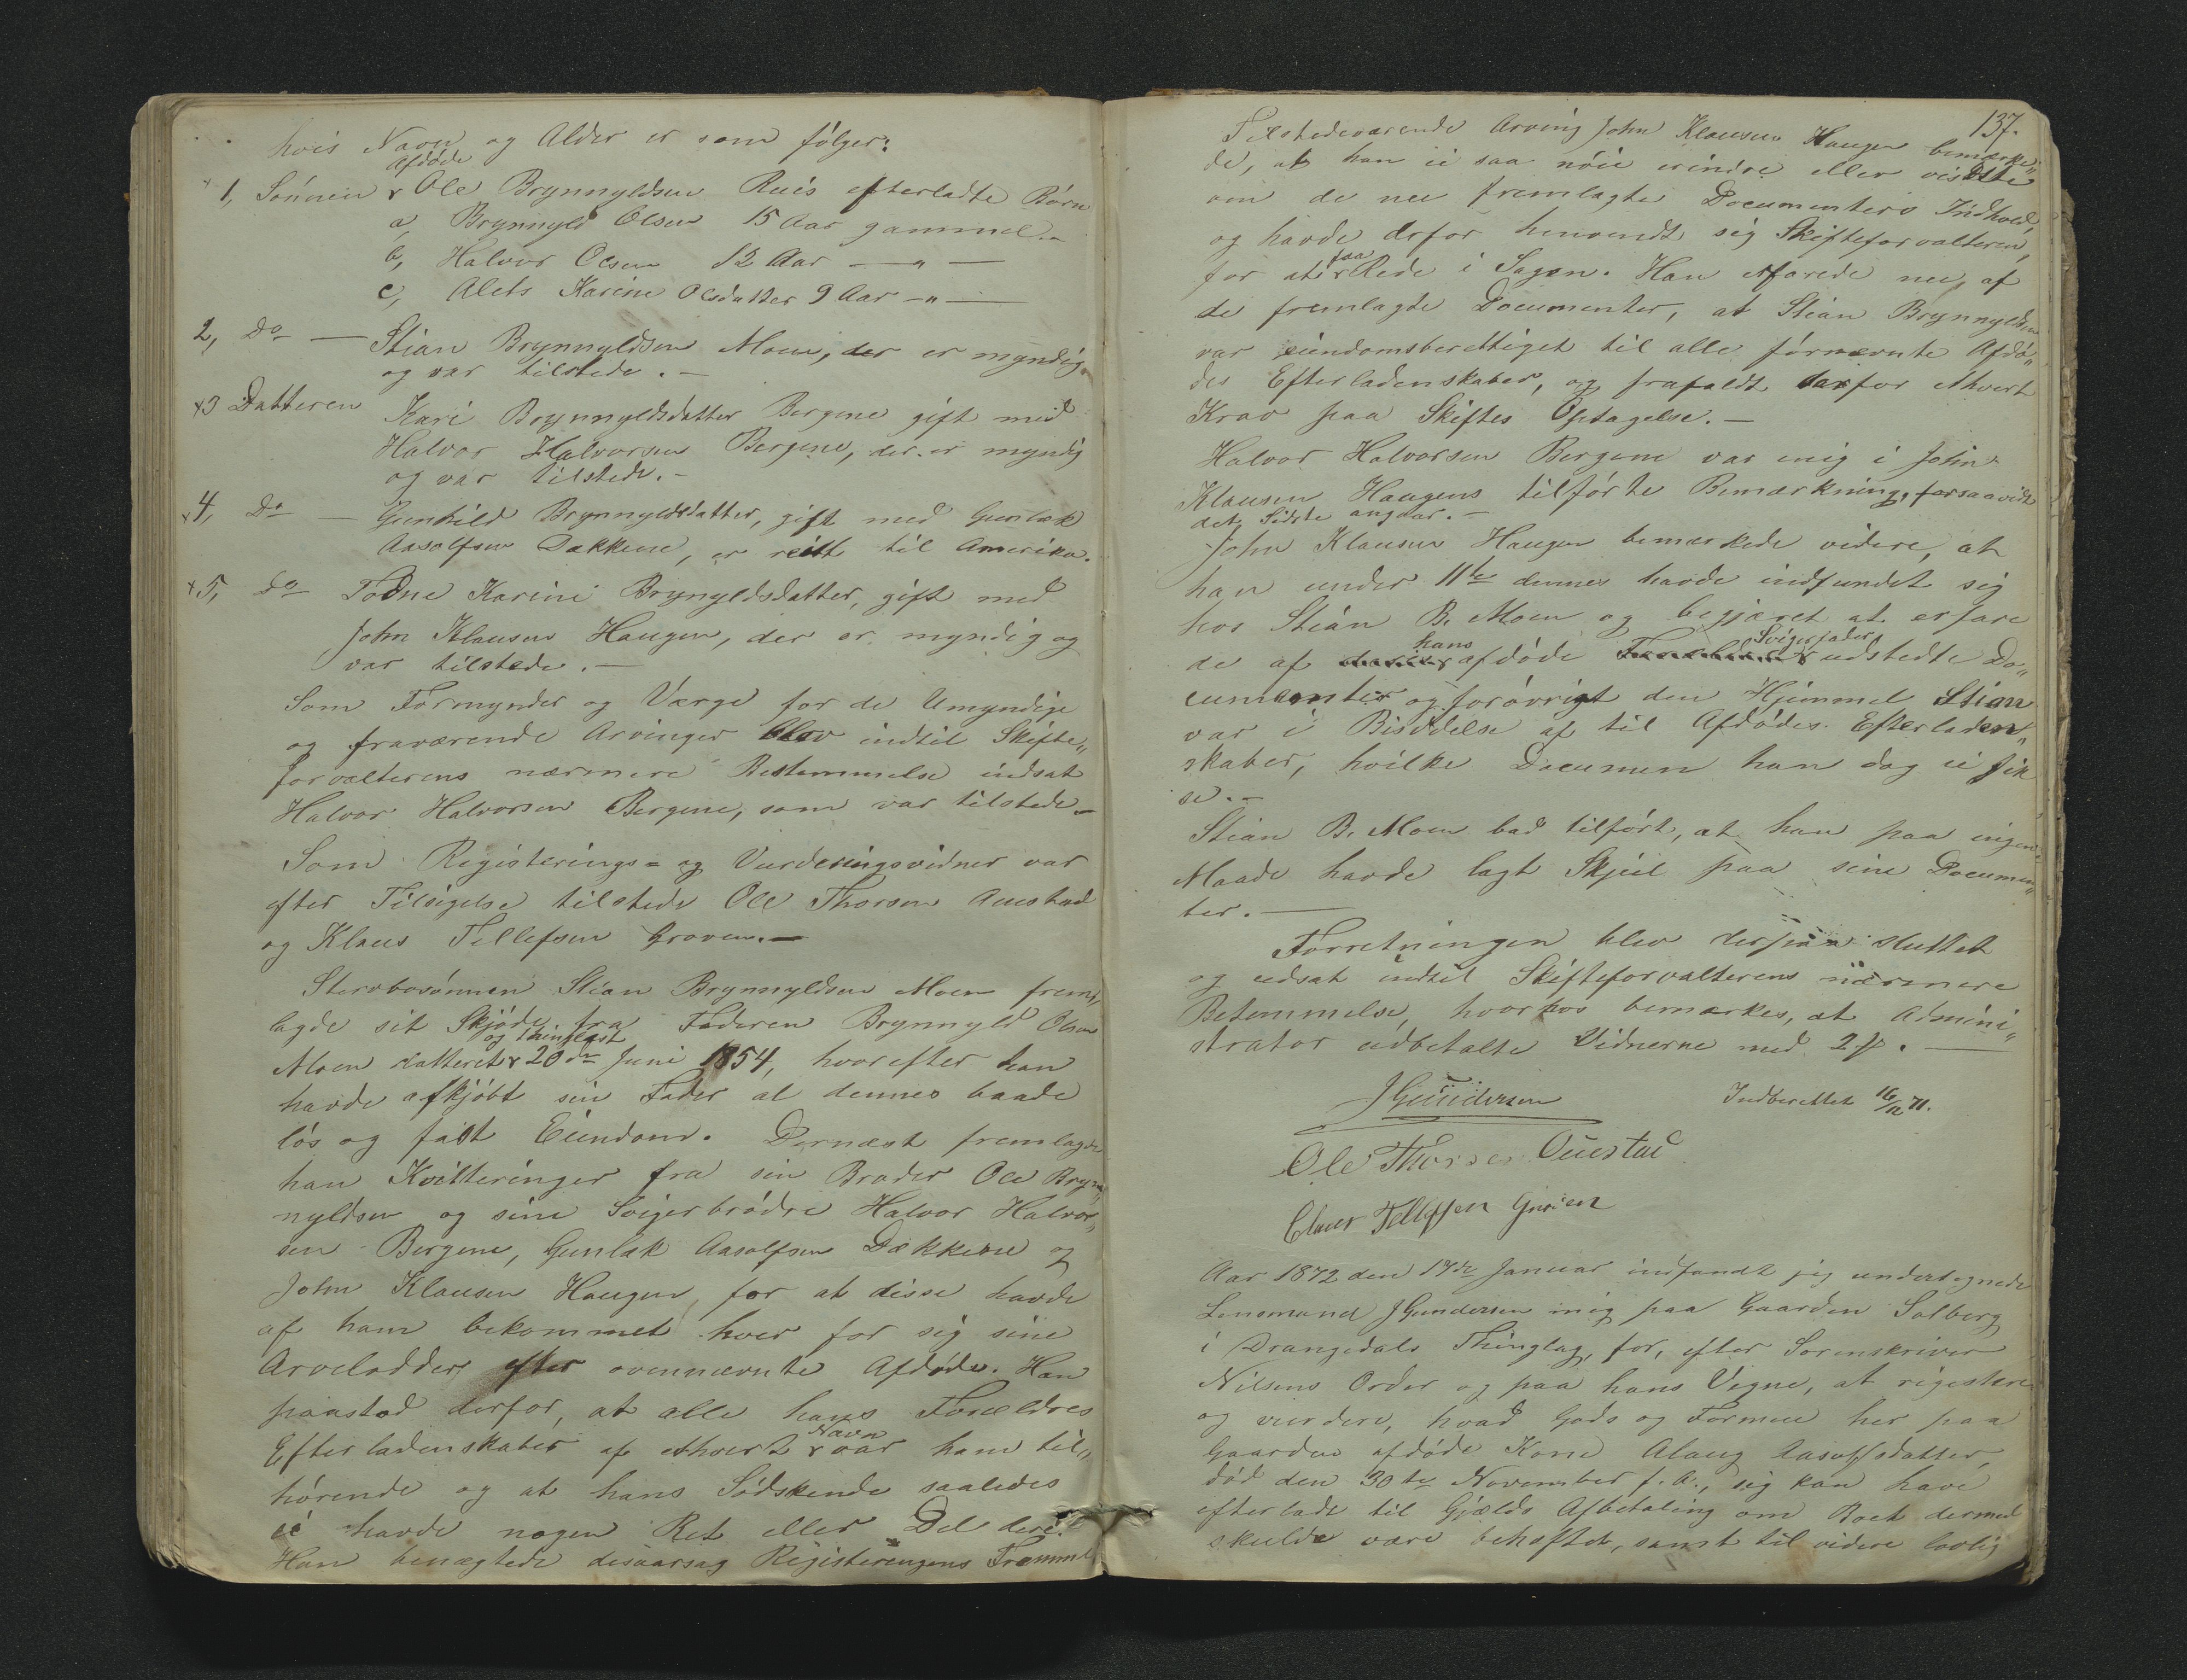 hvis Navn og Alder er som følger:
1, Sønnen afdøde Ole Brynnyldsen Rnis efterladte Børn
a, Brynnyld Olsen 15 Aar gammel.-
b, Halvor Olsen 12 Aar — " —
c, Alets Karine Olsdatter 9 Aar — " —
2, Do — Stian Brynnyldsen Moen, der er myndig
og var tilstede. —
x3 Datteren Kari Brynnyldsdatter Bergene gift med
Halvor Halvorsen Bergene, der er myndig
og var tilstede. -
x4, Do — Gunhild Brynnyldsdatter, gift med Gunlak
Aasolfsen Dækkene, er reist til Amerika.
x5, Do Todne Karine Brynyldsdatter, gift med
John Klausen Haugen, der er myndig og
var tilstede. —
Som Formynder og Værge for de Umyndige
og fraværende Arvinger blev indtil Skifte„
forvalterens nærmere Bestemmelse indsat
Halvor Halvorsen Bergene, som var tilstede -
Som Registerings= og Vurderingsvidner var
efter Tilsigelse tilstede Ole Thorsen Auestad
og Klaus Tellefsen Groven. —
Stervbosønnen Stian Brynnyldsen Moen frem„
lagde sit Skjøde fra Faderen Brynnyld Olsen
Moen datteret og thinglæst 20de Juni 1854, hvorefter han
havde afkjøbt sin Fader al dennes baade
løs og fast Eiendom. Dernæst fremlagde
han Kvitteringer fra sin Broder Ole Bryn„
nyldsen og sine Svigerbrødre Halvor Halvor„
sen Bergene, Gunlak Aasolfsen Dækkene og
John Klausen Haugen, for at disse havde
af ham bekommet hver for sig sine
Arvelodder efter ovennævnte Afdøde. Han
paastod derfor, at alle hans Forældres
Efterladenskaber af ethvert Navn var ham til„
hørende og at hans Sødskende saaledes
ei havde nogen Ret eller Del deri.
Han benægtede desaarsag Registeringens Fremme
137.
Tilstedeværende Arving John Klausen Haugen bemærke„
de, at han ei saa nøie erindre eller vidste
om de nu fremlagte Documenters Indhold,
og havde derfor henvendt sig Skifteforvalteren,
for at faa Rede i Sagen. Han erfarede nu af
de fremlagte Documenter, at Stian Brynnyldsen
var eiendomsberettiget til alle førnævnte Afdø„
des Efterladenskaber, og frafaldt derfor ethvert
Krav paa Skiftes Optagelse. —
Halvor Halvorsen Bergene var enig i John
Klausen Haugens tilførte Bemærkning, forsaavidt
det Sidste angaar. —
John Klausen Haugen bemærkede videre, at
han under 11te dennes havde indfundet sig
hos Stian B. Moen og begjæret at erfare
de af hans afdøde Svigerfader udstedte Do„
cumenter og forøvrigt den Hjemmel Stian
var i Besiddelse af til Afdødes Efterladen„
skaber, hvilke Documen han dog ei fik
se. —
Stian B. Moen bad tilført, at han paa ingen
Maade havde lagt Skjul paa sine Documen„
ter. —
Forretningen blev derpaa sluttet
og udsat indtil Skifteforvalterens nærmere
Betemmelse, hvorhos bemærkes, at Admini„
strator udbetalte Vidnerne med 2 ƒ. —
JGundersen
Indberettet 16/12 71.
Ole Thorsen Ouestad
Claus Tellefsen
Aar 1872 den 17de Januar indfandt jeg undertegnede
Lensmand JGundersen mig paa Gaarden Solberg
i Drangedals Thinglag, for, efter Sorenskriver
Nilsens Order og paa hans Vegne, at registere
og vurdere, hvad Gods og Formue her paa
Gaarden afdøde Kone Alaug Aasolfsdatter,
død den 30te November f. A., sig kan have
efterladt til Gjælds Afbetaling om Boet dermed
skulde være behæftet, samt til videre lovlig